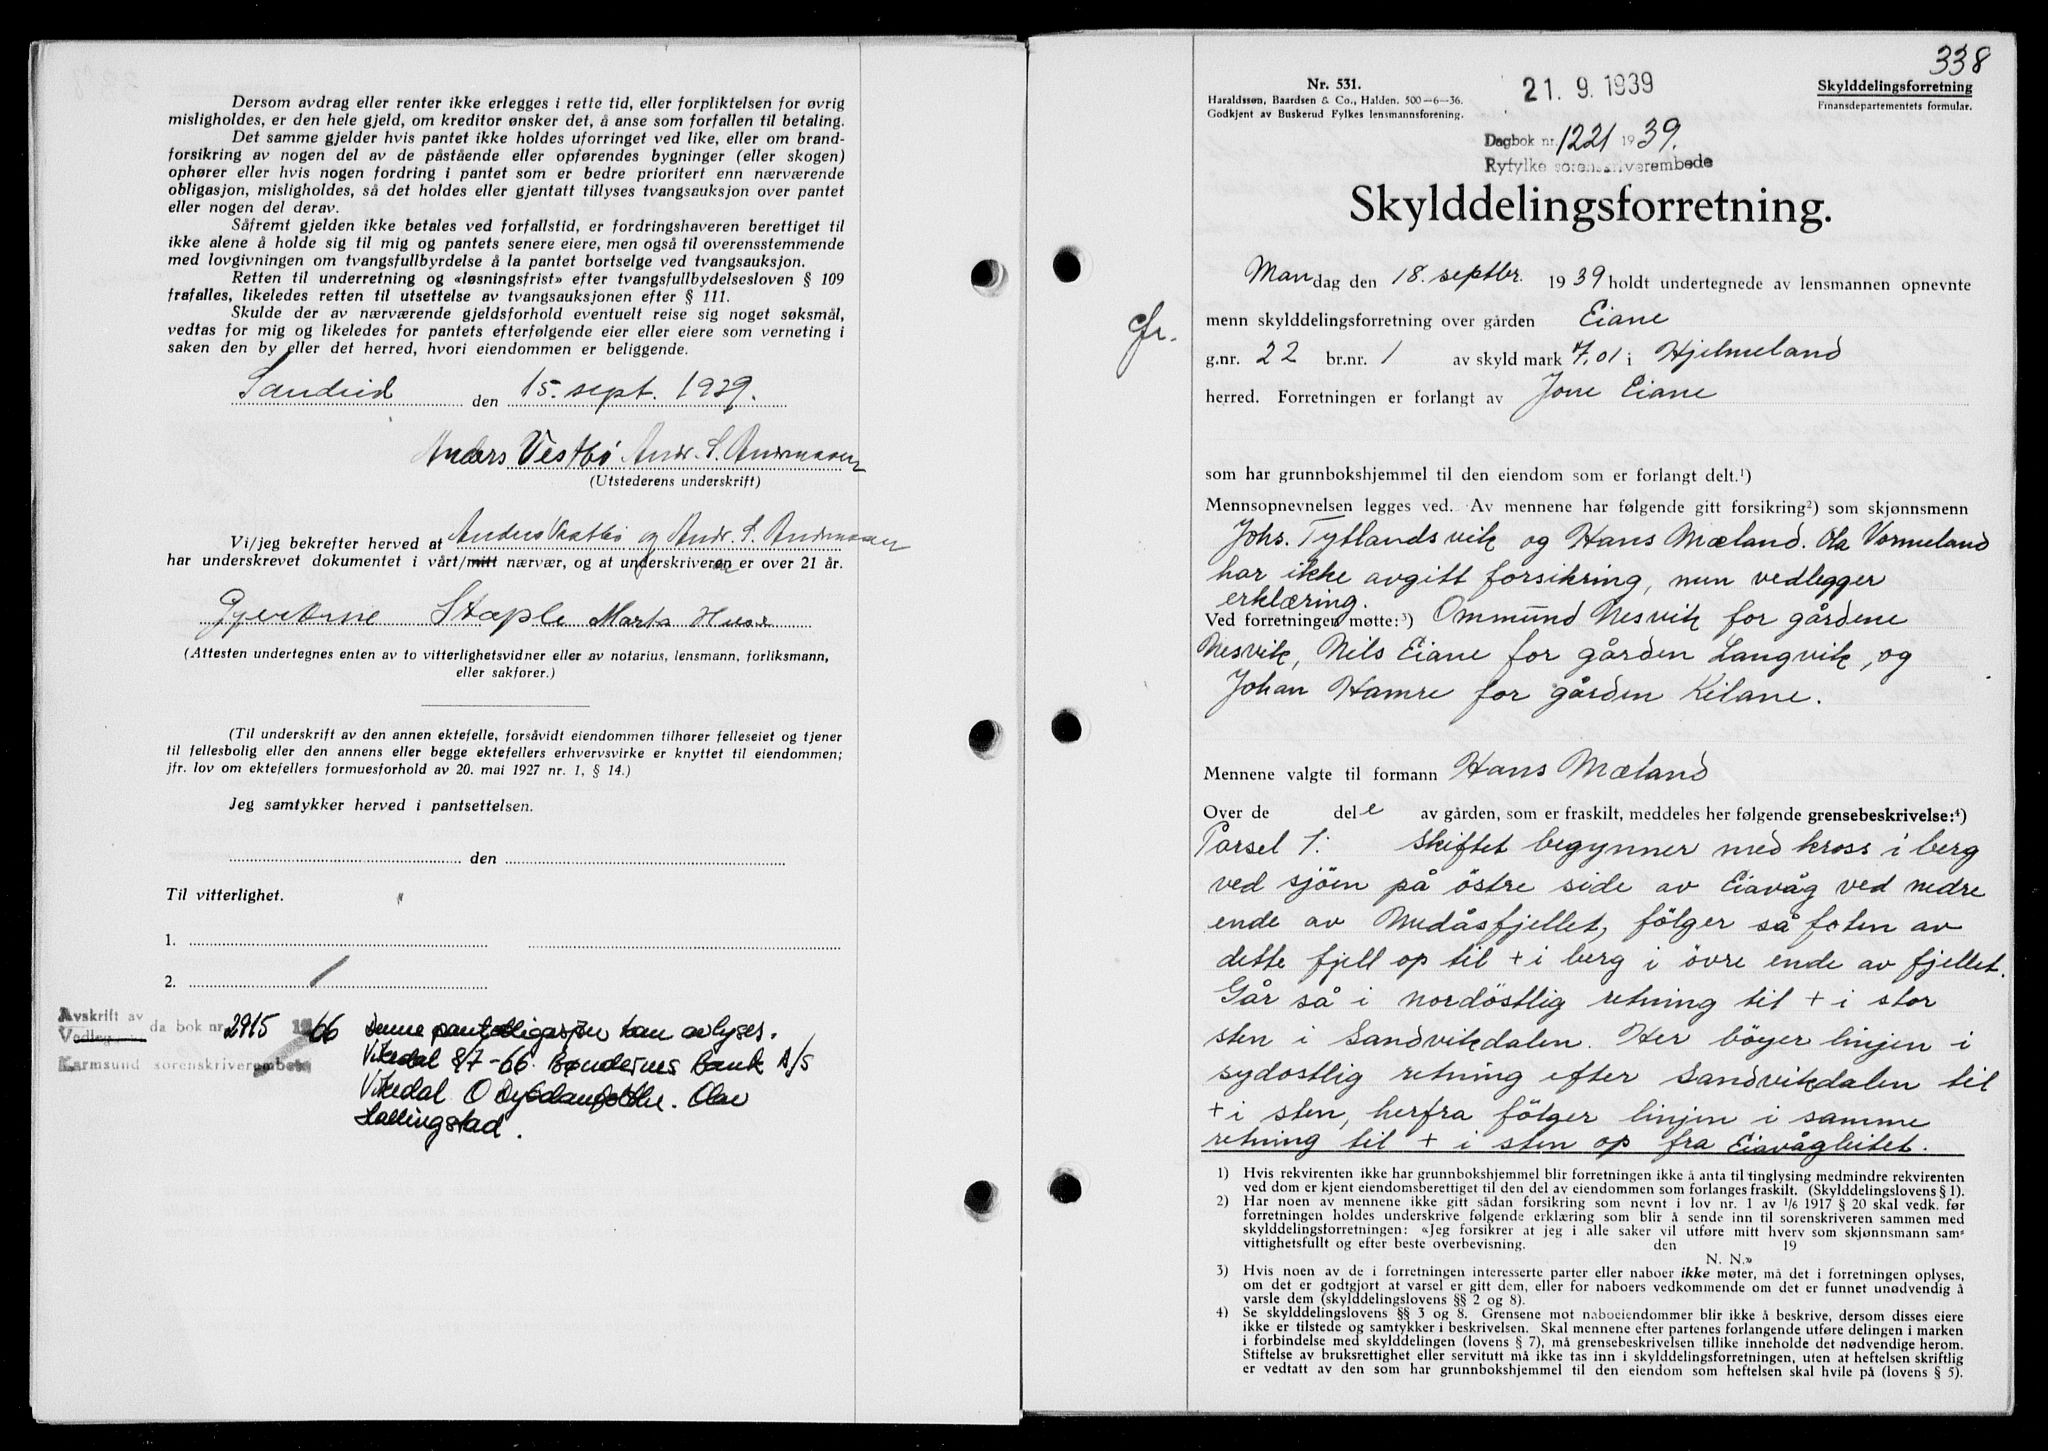 Dersom avdrag eller renter ikke erlegges i rette tid, eller forpliktelsen for øvrig
misligholdes, er den hele gjeld, om kreditor ønsker det, å anse som forfallen til betaling.
Det samme gjelder hvis pantet ikke holdes uforringet ved like, eller om brand-
forsikring av nogen del av de påstående eller opførendes bygninger (eller skogen)
ophører eller hvis nogen fordring i pantet som er bedre prioritert enn nærværende
obligasjon, misligholdes, så det holdes eller gjentatt tillyses tvangsauksjon over pantet
eller nogen del derav.
Såfremt gjelden ikke betales ved forfallstid, er fordringshaveren berettiget til
ikke alene å holde sig til mig og pantets senere eiere, men også til overensstemmende
med lovgivningen om tvangsfullbyrdelse å la pantet bortselge ved tvangsauksjon.
Retten til underretning og «løsningsfrist» efter tvangsfullbydelsesloven § 109
frafalles, likeledes retten til utsettelse av tvangsauksjonen efter § 111.
Skulde der av nærværende gjeldsforhold eventuelt reise sig noget søksmål,
vedtas for mig og likeledes for pantets efterfølgende eier eller eiere som verneting i
saken den by eller det herred, hvori eiendommen er beliggende.
Sandeid den 15. sept. 1939.
Anders Vestbø Andr. S. Andreassen
(Utstederens underskrift)
Vi/jeg bekrefter herved at Anders Vestbø og Andr. S. Andreassen
har underskrevet dokumentet i vårt/mitt nærvær, og at underskriveren er over 21 år.
Stople Marta Huse
(Attesten undertegnes enten av to vitterlighetsvidner eller av notarius, lensmann, forliksmann,
eller sakfører.)
(Til underskrift av den annen ektefelle, forsåvidt eiendommen tilhører felleseiet og tjener
til fellesbolig eller den annens eller begge ektefellers erhvervsvirke er knyttet til eiendommen;
jfr. lov om ektefellers formuesforhold av 20. mai 1927 nr. 1, § 14.)
Jeg samtykker herved i pantsettelsen.
den
Til vitterlighet.
1.
2.
Avskrift av
Vedlegg da bok nr. 2915 19 66
Karmsund sorenskriverembete
Denne pantobligasjon kan avlyses.
Vikedal 8/7-66. Bøndernes Bank A/S
Vikedal Olav
Hallingstad.
338
Nr. 531.
Haraldssøn, Baardsen & Co., Halden. 500-6-36.
Godkjent av Buskerud Fylkes lensmannsforening.
21. 9. 1939
Skylddelingsforretning
Finansdepartementets formular.
Dagbok nr. 1221 1939.
Ryfylke sorenskriverembede
Skylddelingsforretning.
Mandag den 18. septbr. 1939 holdt undertegnede av lensmannen opnevnte
cfr.
menn skylddelingsforretning over gården Eiane
g.nr. 22 br.nr. 1 av skyld mark 7,01 i Hjelmeland
herred. Forretningen er forlangt av Jone Eiane
som har grunnbokshjemmel til den eiendom som er forlangt delt.¹)
Mennsopnevnelsen legges ved. Av mennene har følgende gitt forsikring²) som skjønnsmenn
Johs. Tytlandsvik og Hans Mæland. Ola Vormeland
har ikke avgitt forsikring, men vedlegger
erklæring.
Ved forretningen møtte:³) Ommund Nesvik for gårdene
Nesvik, Nils Eiane for gården Langvik, og
Johan Hamre for gården Kilane.
Mennene valgte til formann Hans Mæland
Over de dele av gården, som er fraskilt, meddeles her følgende grensebeskrivelse:⁴)
Parsel 1: Skiftet begynner med kross i berg
ved sjöen på östre side av Eiavåg ved nedre
ende av Nedåsfjellet, fölger så foten av
dette fjell op til + i berg i övre ende av fjellet.
Går så i nordöstlig retning til + i stor
sten i Sandvikdalen. Her böyer linjen i
sydostlig retning efter Sandvikdalen til
+ i sten, herfra fölger linjen i samme
retning til + i sten op fra Eiavågleitet.
1) Hvis rekvirenten ikke har grunnbokshjemmel blir forretningen ikke å anta til tinglysing medmindre rekvirenten
ved dom er kjent eiendomsberettiget til den del av eiendommen som forlanges fraskilt. (Skylddelingslovens § 1).
2) Har noen av mennene ikke gitt sådan forsikring som nevnt i lov nr. 1 av 1/6 1917 § 20 skal vedk. før
forretningen holdes underskrive følgende erklæring som blir å sende inn til sorenskriveren sammen med
skylddelingsforretningen: «Jeg forsikrer at jeg i alle saker vil utføre mitt hverv som skjønnsmann sam-
vittighetsfullt og efter beste overbevisning. den 19
N. N.»
3) Hvis noen av de i forretningen interesserte parter eller naboer ikke møter, må det i forretningen oplyses,
om det er godtgjort at varsel er gitt dem, eller for naboers vedkommende om det er funnet unødvendig å
varsle dem (skylddelingslovens §§ 2 og 8).
4) Se skylddelingslovens §§ 3 og 8. Grensene mot naboeiendommer blir ikke å beskrive, dersom disses eiere
ikke er tilstede og samtykker i beskrivelsen. Skal mennene efter partenes forlangende utføre delingen i marken
i forbindelse med skylddelingen (lovens § 7), må grensebeskrivelsen tillike inneholde det nødvendige herom.
Stiftelse av bruksrettighet eller servitutt må ikke tas inn i skylddelingsforretningen, uten at heftelsen skriftlig
er vedtatt av den som har grunnbokshjemmel til den eiendom som heftelsen skal hvile på (lovens § 5).